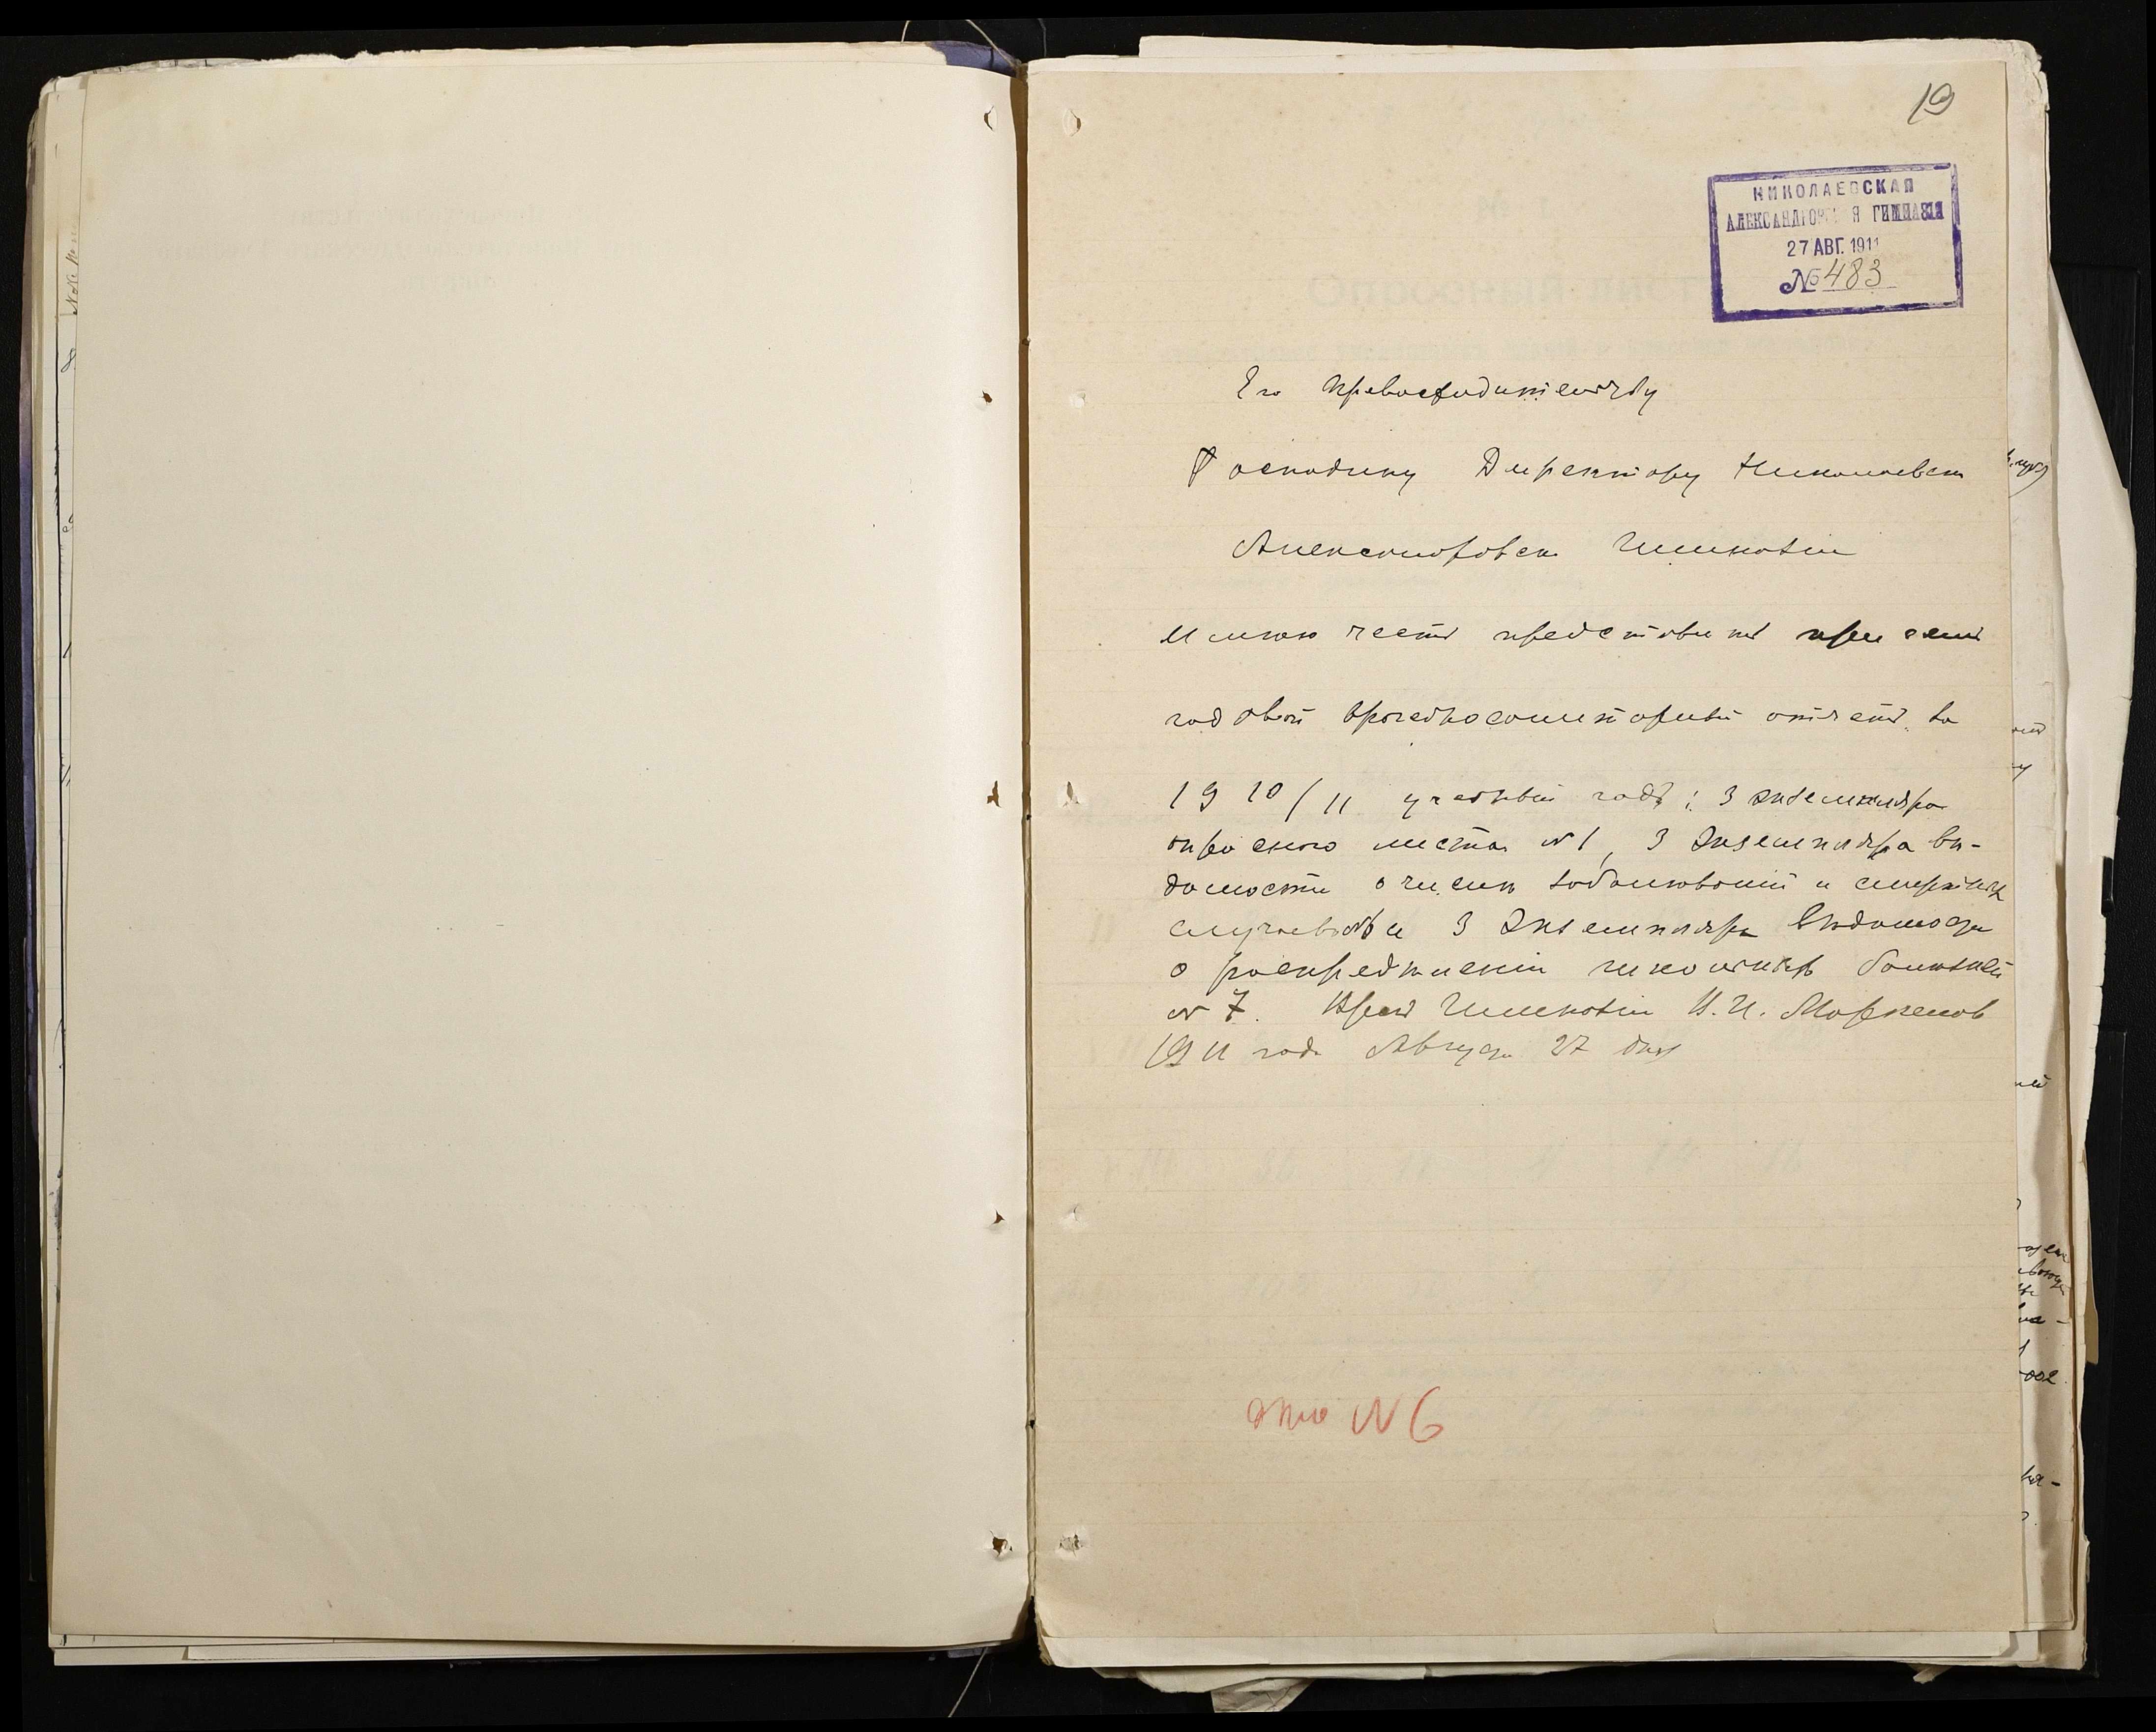 19
НИКОЛАЕВСКАЯ
АЛЕКСАНДРОВСКАЯ ГИМНАЗІЯ
27 АВГ. 1911
№ 483
Его Превосходительству
Господину Директору Николаевск
Александровск Гимназіи
Имѣю честь представить при семъ
годовой врачебносанитарный отчетъ за
1910/11 учебный годъ: 3 экземпляра
опросного листа №1, 3 экземпляра вѣ-
домости о числѣ заболѣваній и смертных
случаевъ и 3 экземпляра вѣдомости
о распредѣленіи школьныхъ болѣзней
№ 7. Врачъ Гимназіи
1911 года Августа 27 дня
дѣло № 6